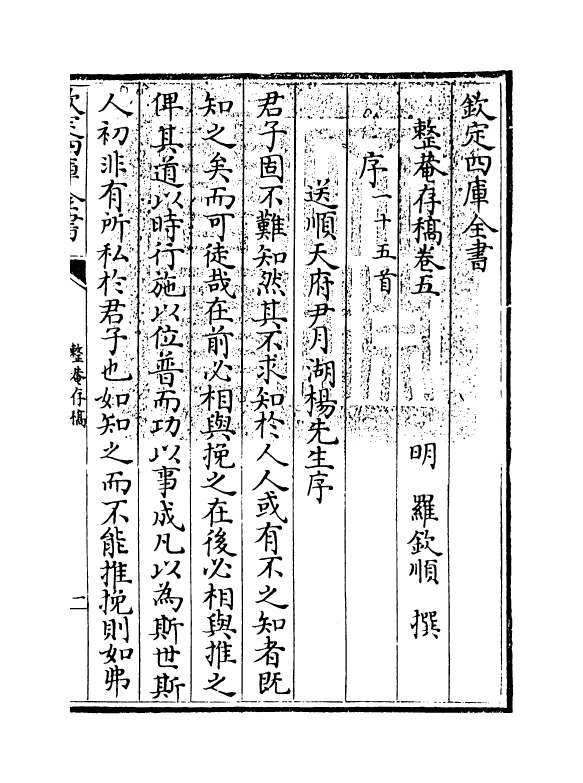 欽定四庫全書
整菴存稿卷五
明　羅欽順　撰
序一十五首
送順天府尹月湖楊先生序
君子固不難知然其不求知於人人或有不之知者既
知之矣而可徒哉在前必相與挽之在後必相與推之
俾其道以時行施以位普而功以事成凡以為斯世斯
人初非有所私於君子也如知之而不能推挽則如弗
欽定四庫全書
整菴存稿